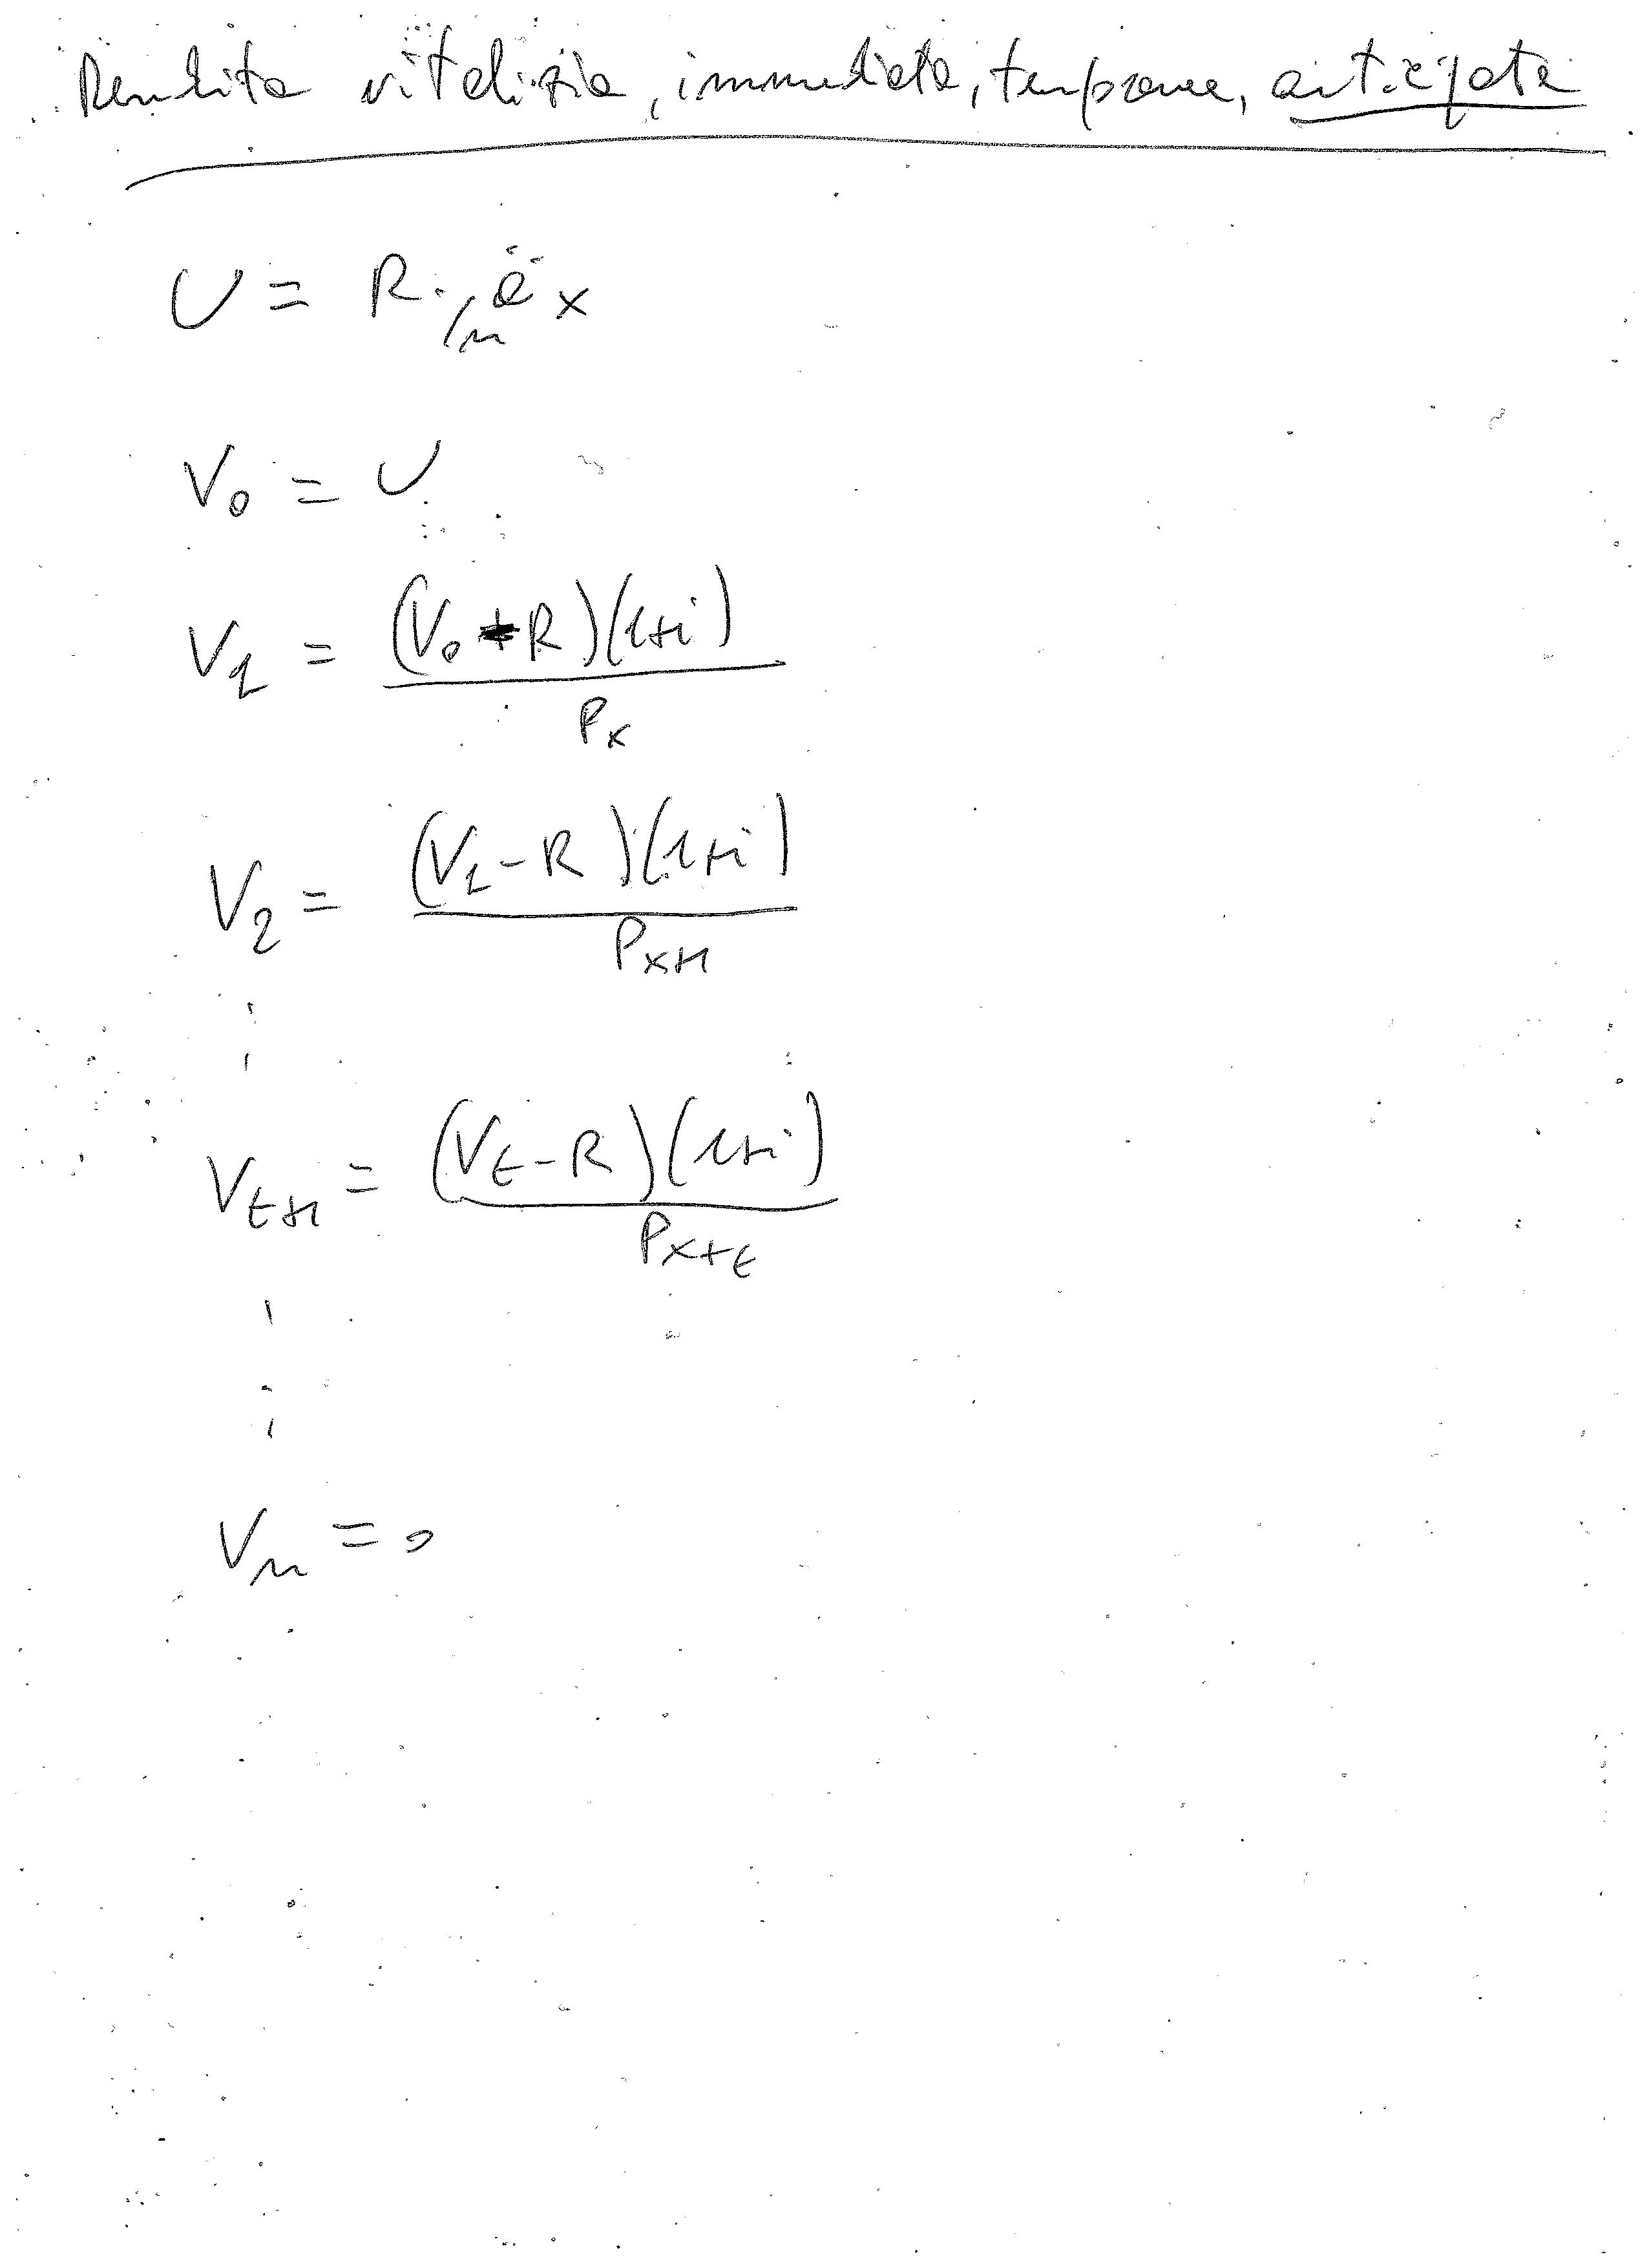 Rendita vitalizia, immediata, temporanea, anticipata
U = R · /n äx
V0 = U
V1 = (V0 - R)(1+i) / Px
V2 = (V1 - R)(1+i) / Px+1
⋮
Vt+1 = (Vt - R)(1+i) / Px+t
⋮
Vn = 0